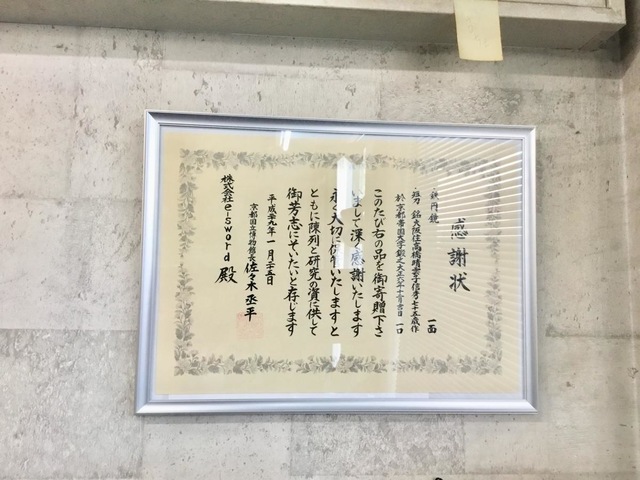 感謝状
鉄円鏡 一面
短刀 銘大阪住高橋晴雲子信秀七十五歳作
於京都帝国大学鍛之大正六年十月吉日 一口
このたび右の品を御寄贈下さ
いまして深く感謝いたします
永く大切に保存いたしますと
ともに陳列と研究の資に供して
御芳志にそいたいと存じます
平成二十九年一月二十五日
京都国立博物館長 佐々木丞平
株式会社e-sword 殿